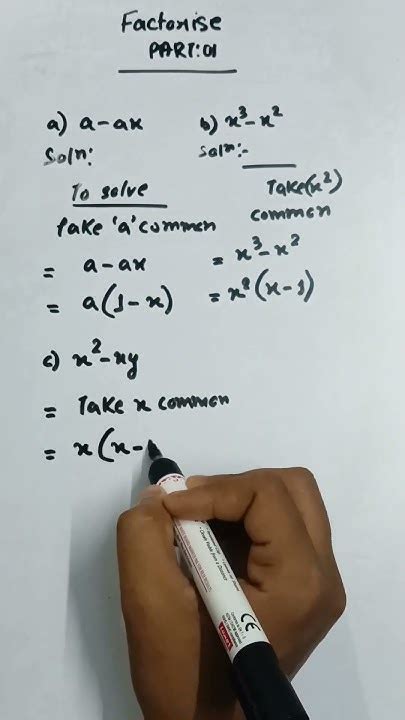 Factorise
PART:01
a) a-ax
Soln:
To solve
Take 'a' common
= a-ax
= a(1-x)
b) x³-x²
Soln:-
Take(x²)
common
= x³-x²
= x²(x-1)
c) x²-xy
= Take x common
= x(x-
CE